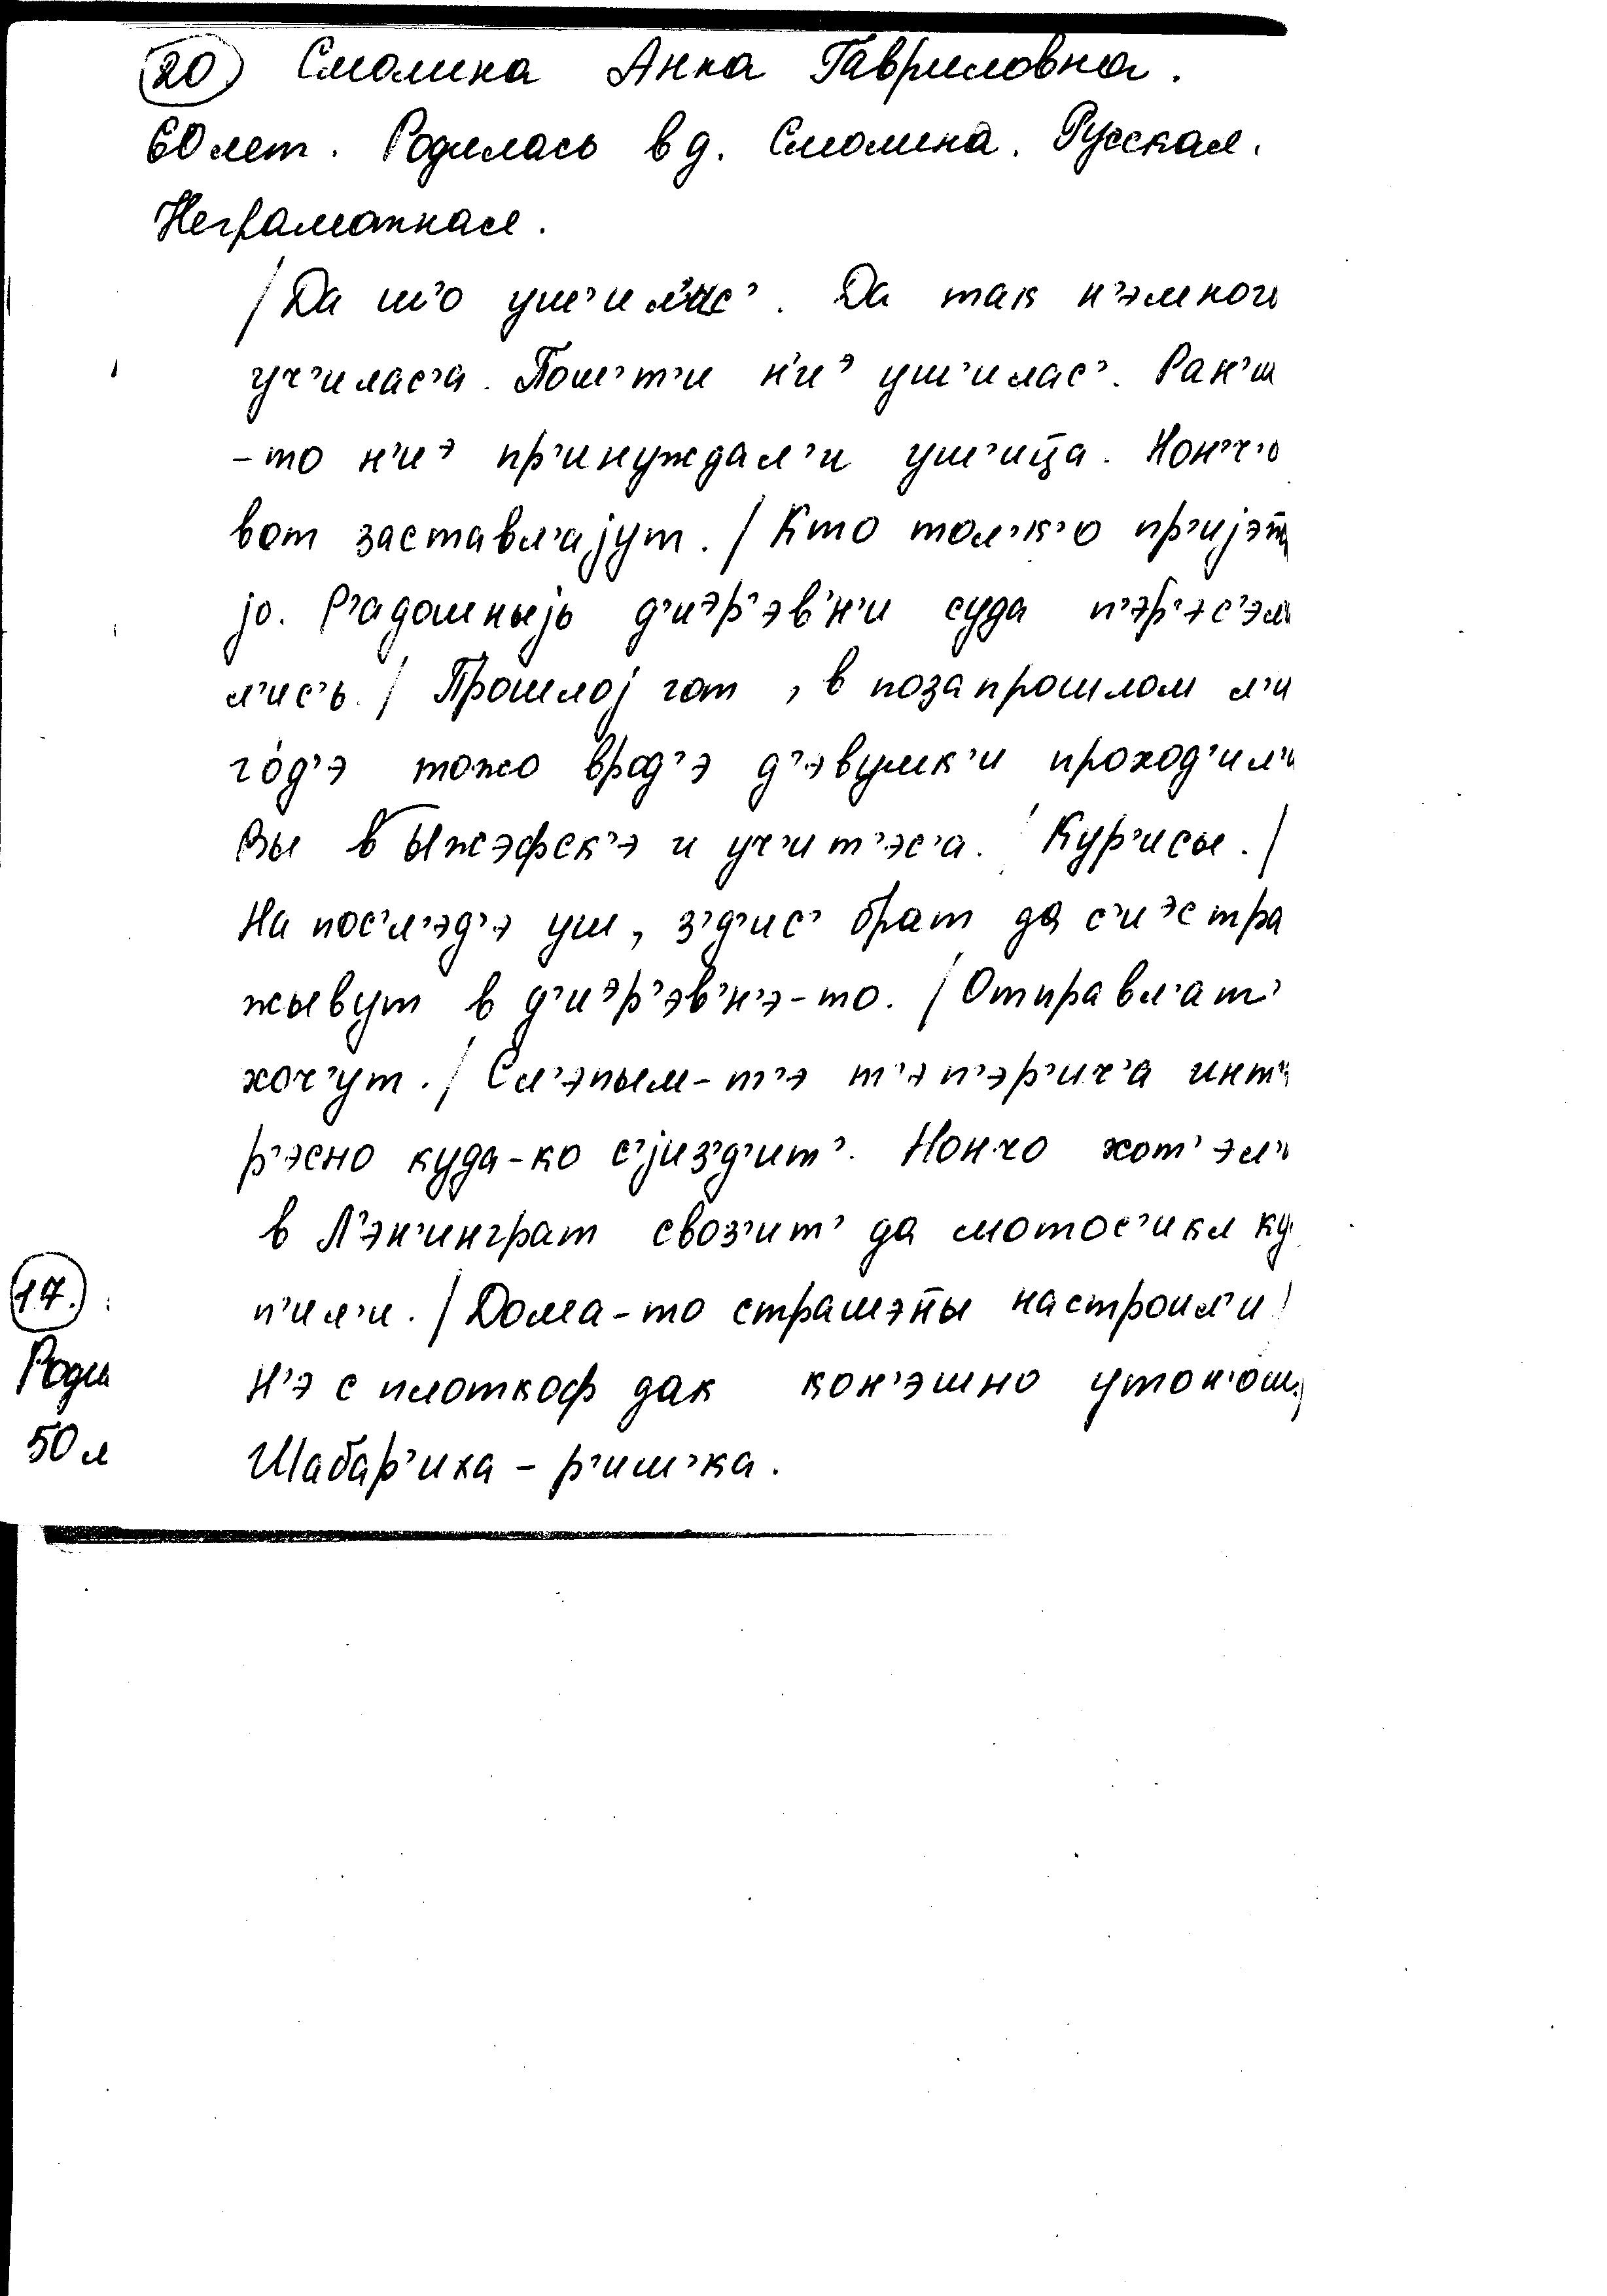 20 Смолина Анна Гавриловна.
60 лет. Родилась в д. Смолина. Русская.
Неграмотная.
/Да ш'о уш'илас'. Да так н'эмного
уч'илас'а. Пош'т'и н'иᵊ уш'илас'. Ран'ш
-то н'иᵊ пр'инуждал'и уш'ица. Нон'ч'о
вот заставл'ајут. / Кто тол'к'о пр'ијэт
јо. Р'адошныјь д'иэр'эв'н'и суда п'эр'эс'эл
л'ис'ь. / Прошлој гот, в позапрошлом л'и
год'э тожо врод'э д'эвушк'и проход'ил'и
Вы в Ыжэфск'э и уч'ит'эс'а. Кур'исы. /
На посл'эд'э уш, з'д'ис' брат да с'иэстра
жывут в д'иэр'эв'н'э-то. / Отправл'ат'
хоч'ут. / Сл'эпым-т'э т'эп'эр'ич'а инт'
р'эсно куда-ко с'јиз'д'ит'. Нончо хот'эл'и
в Л'эн'инграт своз'ит' да мотос'икл ку
п'ил'и. / Дома-то страшэн̄ы настроил'и /
Н'э с плоткоф дак кон'эшно утон'ош /
Шабар'иха - р'иш'ка.
17.
Роди
50 л